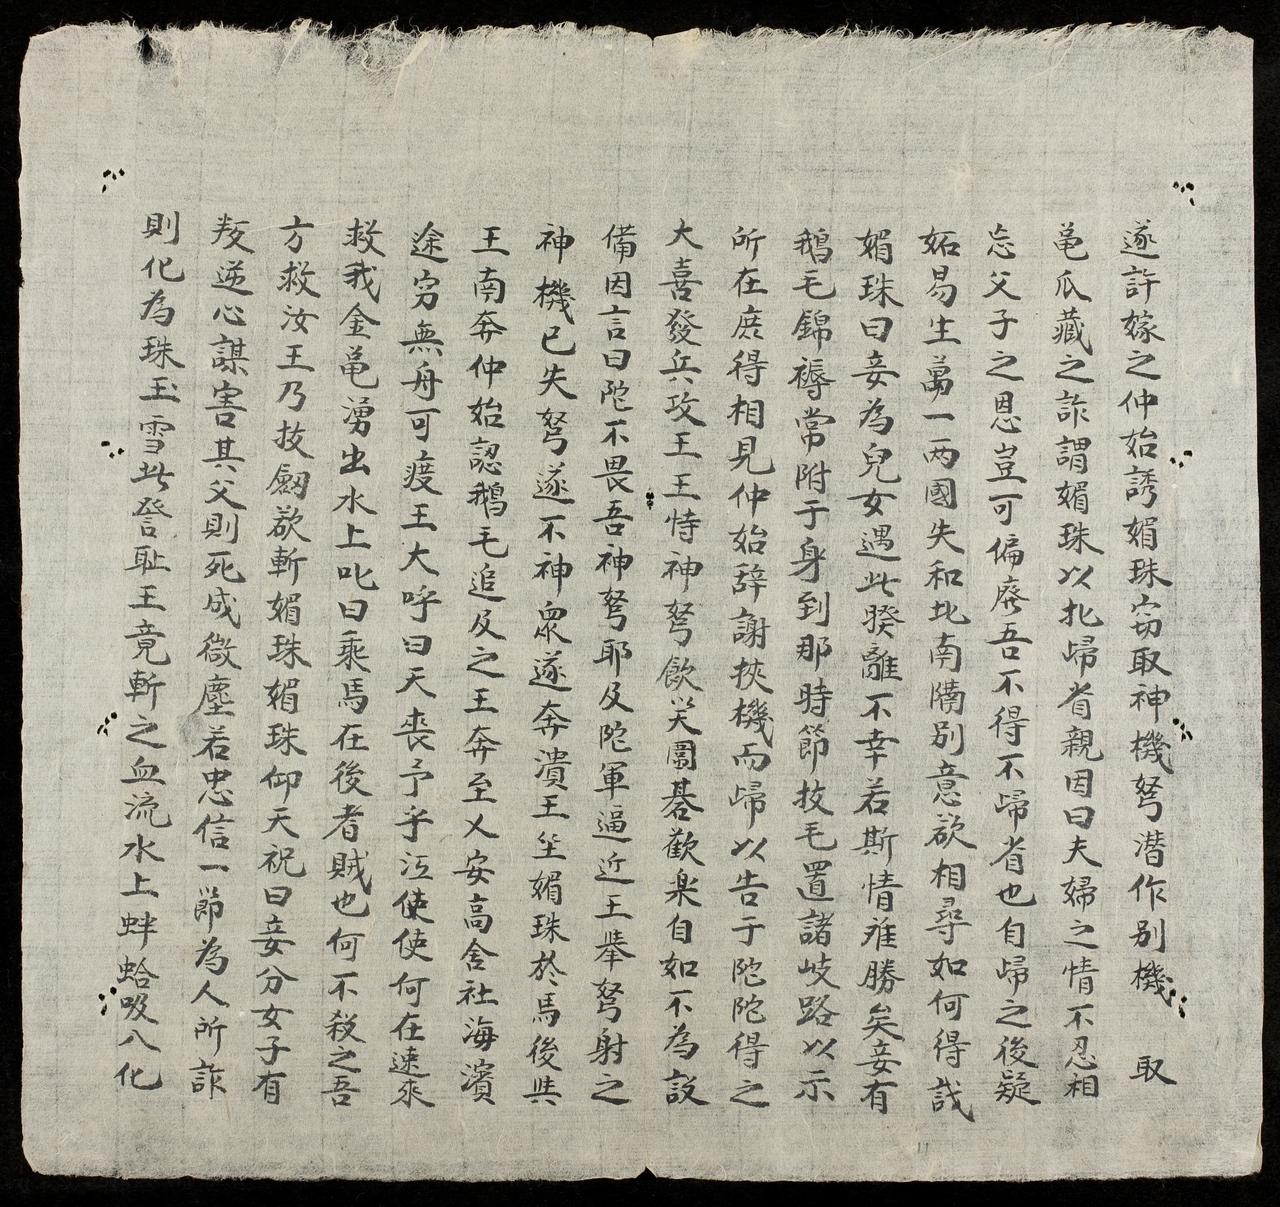 遂許嫁之仲始誘媚珠窃取神機弩潜作別機　取
黾爪藏之詐謂媚珠以北歸省親因曰夫婦之情不忍相
忘父子之恩豈可偏廃吾不得不歸省也自歸之後疑
妬易生萬一兩國失和北南隔別意欲相尋如何得哉
媚珠曰妾為兒女遇此暌離不幸若斯情难勝矣妾有
鵝毛錦褥常附于身到那時節抜毛置諸岐路以示
所在庶得相見仲始辞謝挾機而歸以告于陀陀得之
大喜發兵攻王王恃神弩飲笑圍碁歡楽自如不為設
備因言曰陀不畏吾神弩耶及陀軍逼近王挙弩射之
神機已失弩遂不神衆遂奔潰王坐媚珠於馬後與
王南奔仲始認鵝毛追及之王奔至乂安高舍社海濱
途穷無舟可渡王大呼曰天喪予乎江使使何在速來
救我金黾湧出水上叱曰乘馬在後者賊也何不殺之吾
方救汝王乃抜劔欲斬媚珠媚珠仰天祝曰妾分女子有
叛逆心謀害其父則死成微塵若忠信一節為人所詐
則化為珠玉雪此讐耻王竟斬之血流水上蚌蛤吸入化